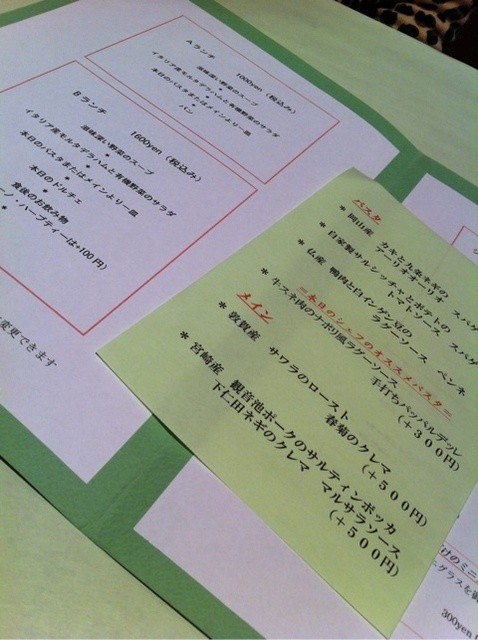 Aランチ
1000yen (税込み)
滋味深い野菜のスープ
*
イタリア産モルタデラハムと有機野菜のサラダ
*
本日のパスタまたはメインより一皿
*
パン
Bランチ
1600yen (税込み)
滋味深い野菜のスープ
*
イタリア産モルタデラハムと有機野菜のサラダ
*
本日のパスタまたはメインより一皿
*
本日のドルチェ
*
食後のお飲み物
ノ・ハーブティーは+100円)
*
変更できます
パスタ
* 岡山産 カキと九条ネギの
アーリオオーリオ スパゲ
* 自家製サルシッチャとポテトの
トマトソース スパゲ
* 仏産 鴨肉と白インゲン豆の
ラグーソース ペンネ
=本日のシェフのオススメパスタ=
* 牛スネ肉のナポリ風ラグーソース
手打ちパッパルデッレ
(+300円)
メイン
* 敦賀産 サワラのロースト
春菊のクレマ
(+500円)
* 宮崎産 観音池ポークのサルティンボッカ
下仁田ネギのクレマ マルサラソース
(+500円)
けのミニ
ニグラスを
300yen